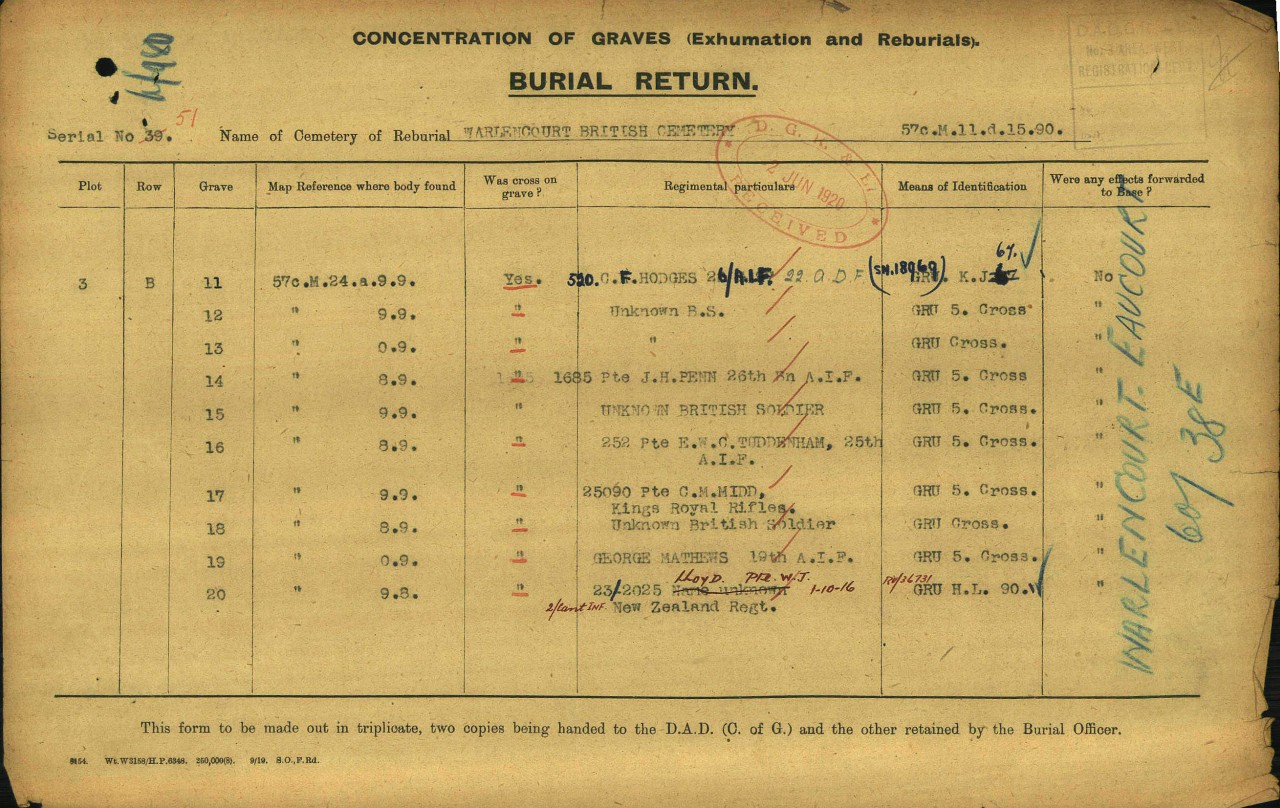 CONCENTRATION OF GRAVES (Exhumation and Reburials).
BURIAL RETURN.
Serial No 39. 51 Name of Cemetery of Reburial WARLENCOURT BRITISH CEMETERY 57c.M.11.d.15.90.
D. G. R. & E. 2 JUN 1920 RECEIVED
Plot Row Grave Map Reference where body found Was cross on grave? Regimental particulars Means of Identification Were any effects forwarded to Base?
3 B 11 57c.M.24.a.9.9. Yes. 520. C.F. HODGES 26/A.I.F. 22. A.D.F. (SN.18969) GRU. K.J. 67. No
12 " 9.9. " Unknown B.S. GRU 5. Cross "
13 " 0.9. " " GRU Cross. "
14 " 8.9. " 1685 Pte J.H.PENN 26th Bn A.I.F. GRU 5. Cross "
15 " 9.9. " UNKNOWN BRITISH SOLDIER GRU 5. Cross. "
16 " 8.9. " 252 Pte E.W.C.TUDDENHAM, 25th GRU 5. Cross. "
A.I.F.
17 " 9.9. " 25090 Pte C.M.MIDD, GRU 5. Cross. "
Kings Royal Rifles.
18 " 8.9. " Unknown British Soldier GRU Cross. "
19 " 0.9. " GEORGE MATHEWS 19th A.I.F. GRU 5. Cross. "
Lloyd. Pte. W.J.
20 " 9.8. " 23/2025 Name unknown 1-10-16 GRU H.L. 90. "
2/Cant INF. New Zealand Regt.
WARLENCOURT. EAUCOURT
607 38E
This form to be made out in triplicate, two copies being handed to the D.A.D. (C. of G.) and the other retained by the Burial Officer.
6154. Wt.W3158/H.P.6348. 250,000(8). 9/19. S.O.,F.Rd.